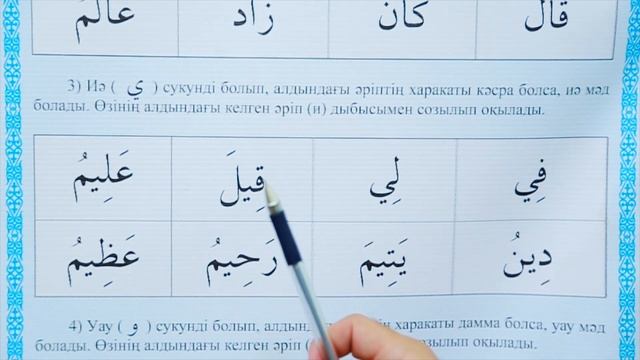 قَالَ كَانَ زَادَ عَالَمُ
3) Иә ( ي ) сукунді болып, алдындағы әріптің харакаты кәсра болса, иә мәд
болады. Өзінің алдындағы келген әріп (и) дыбысымен созылып оқылады.
فِي لِي قِيلَ عَلِيمُ
دِينُ يَتِيمَ رَحِيمُ عَظِيمُ
4) Уау ( و ) сукунді болып, харакаты дамма болса, уау мәд
болады. Өзінің алдындағы келген әріп созылып оқылады.